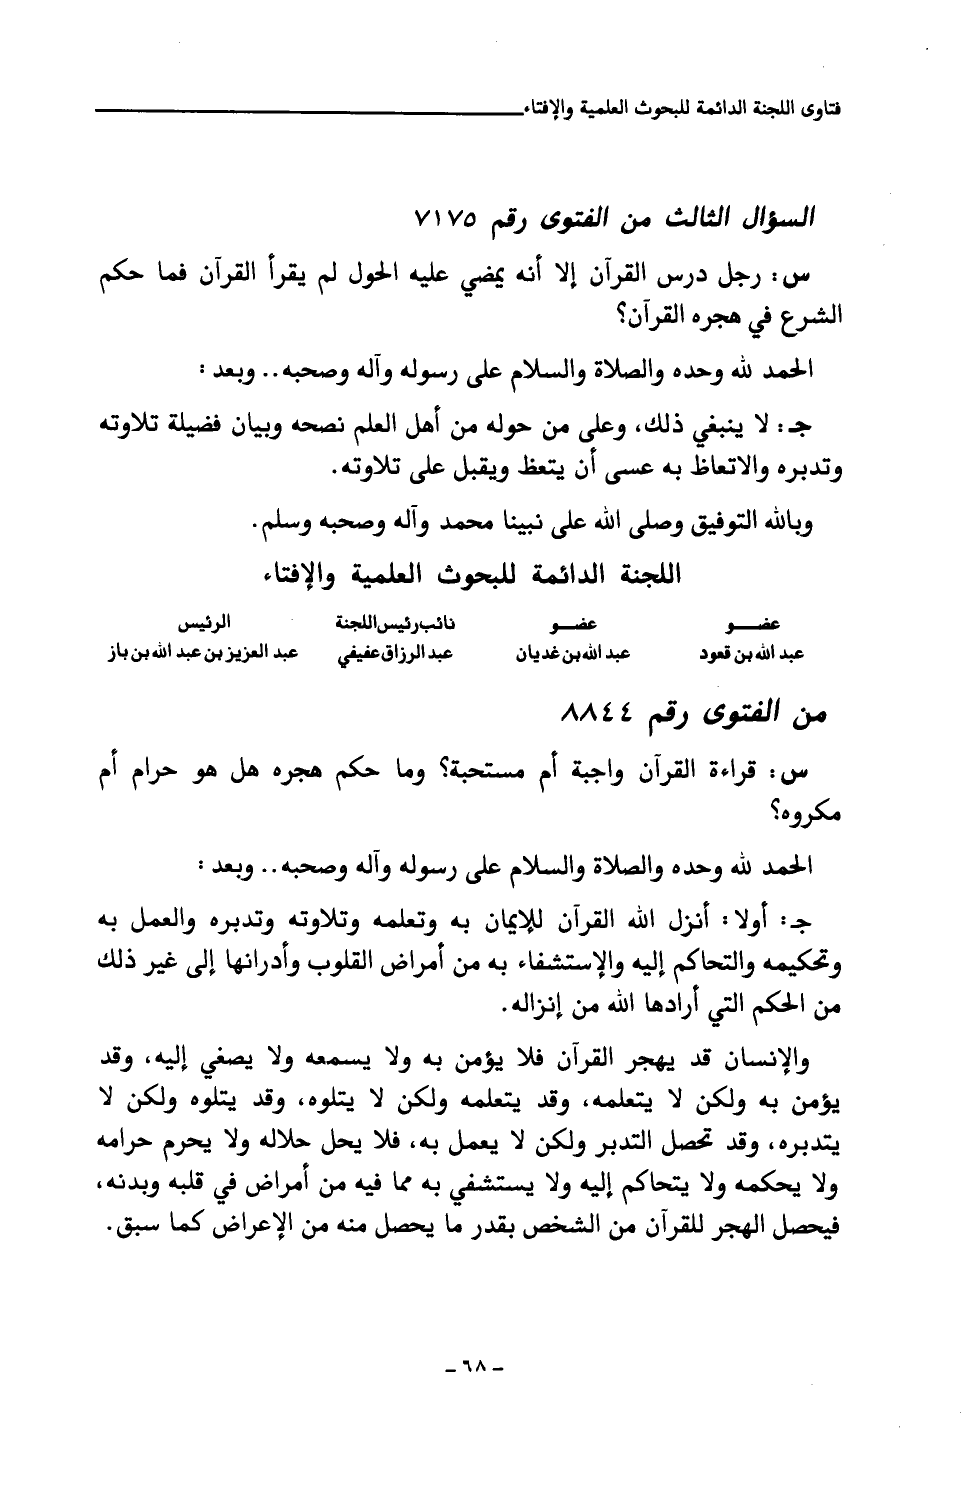 فتاوى اللجنة الدائمة للبحوث العلمية والإفتاء
السؤال الثالث من الفتوى رقم ٧١٧٥
س: رجل درس القرآن إلا أنه يمضي عليه الحول لم يقرأ القرآن فما حكم
الشرع في هجره القرآن؟
الحمد لله وحده والصلاة والسلام على رسوله وآله وصحبه.. وبعد:
جـ: لا ينبغي ذلك، وعلى من حوله من أهل العلم نصحه وبيان فضيلة تلاوته
وتدبره والاتعاظ به عسى أن يتعظ ويقبل على تلاوته.
وبالله التوفيق وصلى الله على نبينا محمد وآله وصحبه وسلم.
اللجنة الدائمة للبحوث العلمية والإفتاء
عضـــو عضـــو نائب رئيس اللجنة الرئيس
عبد الله بن قعود عبد الله بن غديان عبد الرزاق عفيفي عبد العزيز بن عبد الله بن باز
من الفتوى رقم ٨٨٤٤
س: قراءة القرآن واجبة أم مستحبة؟ وما حكم هجره هل هو حرام أم
مكروه؟
الحمد لله وحده والصلاة والسلام على رسوله وآله وصحبه.. وبعد:
جـ: أولا: أنزل الله القرآن للإيمان به وتعلمه وتلاوته وتدبره والعمل به
وتحكيمه والتحاكم إليه والإستشفاء به من أمراض القلوب وأدرانها إلى غير ذلك
من الحكم التي أرادها الله من إنزاله.
والإنسان قد يهجر القرآن فلا يؤمن به ولا يسمعه ولا يصغي إليه، وقد
يؤمن به ولكن لا يتعلمه، وقد يتعلمه ولكن لا يتلوه، وقد يتلوه ولكن لا
يتدبره، وقد تحصل التدبر ولكن لا يعمل به، فلا يحل حلاله ولا يحرم حرامه
ولا يحكمه ولا يتحاكم إليه ولا يستشفي به مما فيه من أمراض في قلبه وبدنه،
فيحصل الهجر للقرآن من الشخص بقدر ما يحصل منه من الإعراض كما سبق.
- ٦٨ -